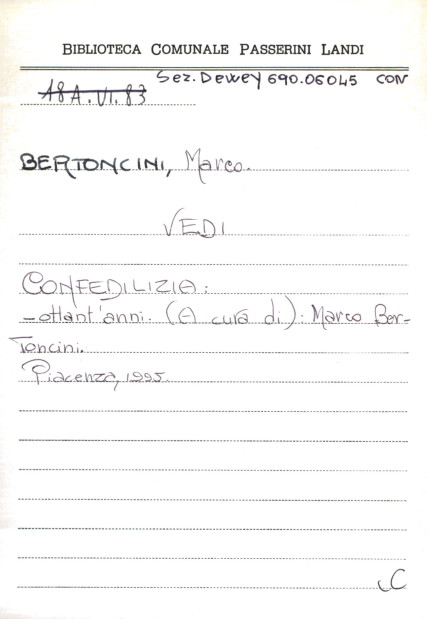 BIBLIOTECA COMUNALE PASSERINI LANDI
Sez. Dewey 690.06045 CON
18A.VI.83
BERTONCINI, Marco.
VEDI
CONFEDILIZIA:
-ottant'anni. (A cura di): Marco Ber-
Toncini.
Piacenza, 1995.
C